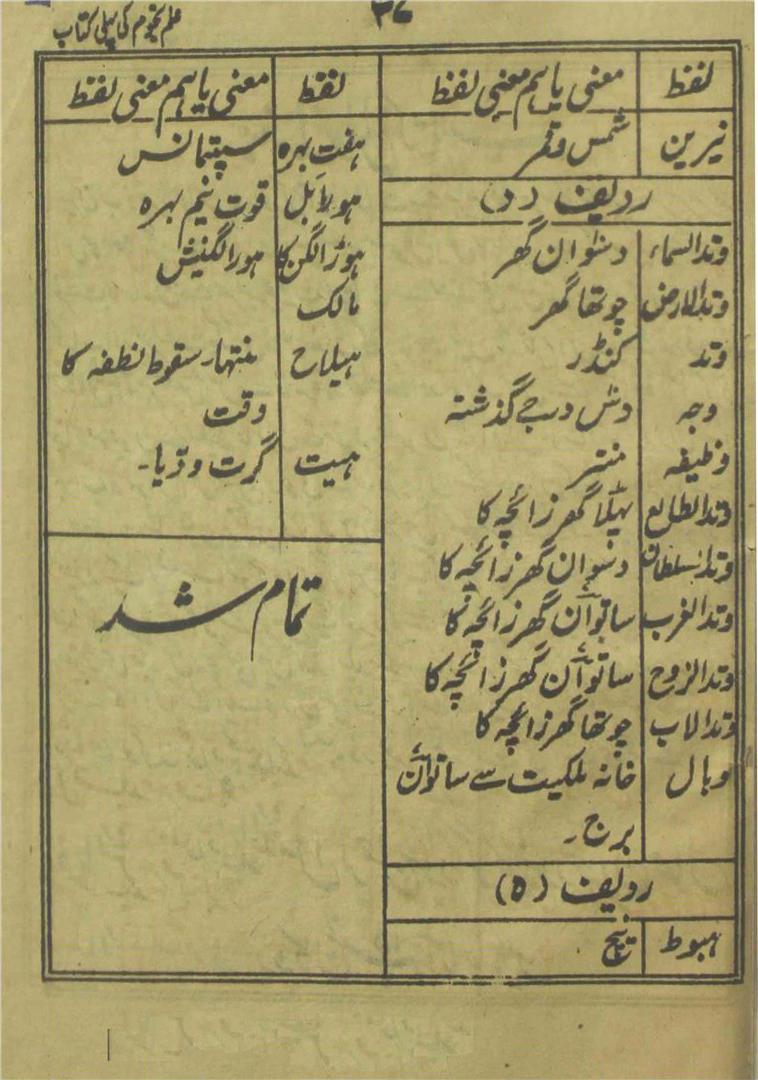 علم نجوم کی پہلی کتاب
لفظ معنی یا ہم معنی لفظ
نیرین شمس و قمر
ردیف (و)
وتدالسماء دسواں گھر
وتدالارض چوتھا گھر
وتد کنڈر
وجہ دس درجے گذشتہ
وظیفہ منتر
وتدالطالع پہلا گھر زائچہ کا
وتدالسلطان دسواں گھر زائچہ کا
وتدالغرب ساتواں گھر زائچہ کا
وتدالزوج ساتواں گھر زائچہ کا
وتدالاب چوتھا گھر زائچہ کا
وبال خانہ ملکیت سے ساتواں
برج۔
ردیف (ہ)
ہبوط نیچ
لفظ معنی یا ہم معنی لفظ
ہفت بہرہ سپتمانس
ہورابل قوت نیم بہرہ
ہورالگن کا ہورالگنیش
مالک
ہیلاج منتہاء سقوط نطفہ کا
وقت
ہیت گرت ودیا۔
تمام شد